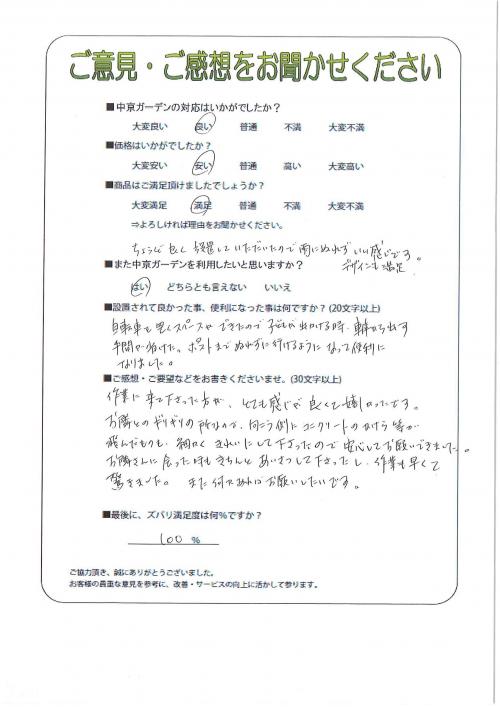 ご意見・ご感想をお聞かせください
■中京ガーデンの対応はいかがでしたか？
大変良い 良い 普通 不満 大変不満
■価格はいかがでしたか？
大変安い 安い 普通 高い 大変高い
■商品はご満足頂けましたでしょうか？
大変満足 満足 普通 不満 大変不満
⇒よろしければ理由をお聞かせください。
ちょうど良く設置していただいたので雨にぬれずいい感じです。
デザインも満足
■また中京ガーデンを利用したいと思いますか？
はい どちらとも言えない いいえ
■設置されて良かった事、便利になった事は何ですか？(20文字以上)
自転車を置くスペースができたので子どもが出かける時、車から出す
手間が省けた。ポストまでぬれずに行けるようになって便利に
なりました。
■ご感想・ご要望などをお書きくださいませ。(30文字以上)
作業に来て下さった方が、とても感じが良くて嬉しかったです。
お隣とのギリギリの所なので、向こう側にコンクリートのかけら等が
飛んだりも、細かくきれいにして下さったので安心してお願いできました。
お隣さんに会った時もきちんとあいさつして下さったし、作業も早くて
驚きました。また何かあればお願いしたいです。
■最後に、ズバリ満足度は何%ですか？
100 %
ご協力頂き、誠にありがとうございました。
お客様の貴重な意見を参考に、改善・サービスの向上に活かして参ります。